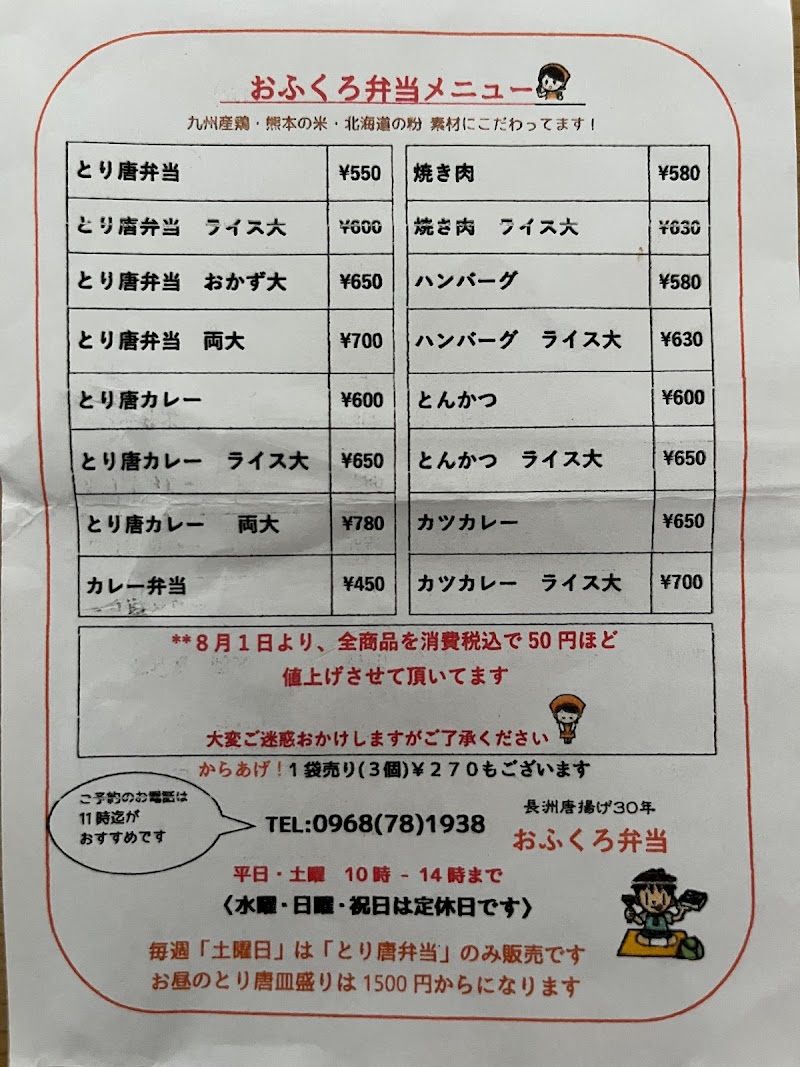 おふくろ弁当メニュー
九州産鶏・熊本の米・北海道の粉 素材にこだわってます！
とり唐弁当 ¥550
とり唐弁当 ライス大 ¥600
とり唐弁当 おかず大 ¥650
とり唐弁当 両大 ¥700
とり唐カレー ¥600
とり唐カレー ライス大 ¥650
とり唐カレー 両大 ¥780
カレー弁当 ¥450
焼き肉 ¥580
焼き肉 ライス大 ¥630
ハンバーグ ¥580
ハンバーグ ライス大 ¥630
とんかつ ¥600
とんかつ ライス大 ¥650
カツカレー ¥650
カツカレー ライス大 ¥700
**８月１日より、全商品を消費税込で50円ほど
値上げさせて頂いてます
大変ご迷惑おかけしますがご了承ください
からあげ！１袋売り(３個)￥２７０もございます
ご予約のお電話は
11時迄が
おすすめです
TEL:0968(78)1938
長洲唐揚げ30年
おふくろ弁当
平日・土曜 10時 - 14時まで
〈水曜・日曜・祝日は定休日です〉
毎週「土曜日」は「とり唐弁当」のみ販売です
お昼のとり唐皿盛りは1500円からになります